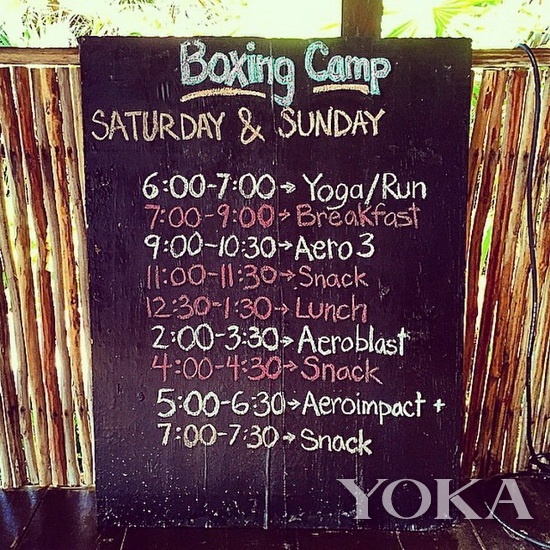 Boxing Camp
SATURDAY & SUNDAY
6:00-7:00→Yoga/Run
7:00-9:00→Breakfast
9:00-10:30→Aero 3
11:00-11:30→Snack
12:30-1:30→Lunch
2:00-3:30→Aeroblast
4:00-4:30→Snack
5:00-6:30→Aeroimpact +
7:00-7:30→Snack
YOKA